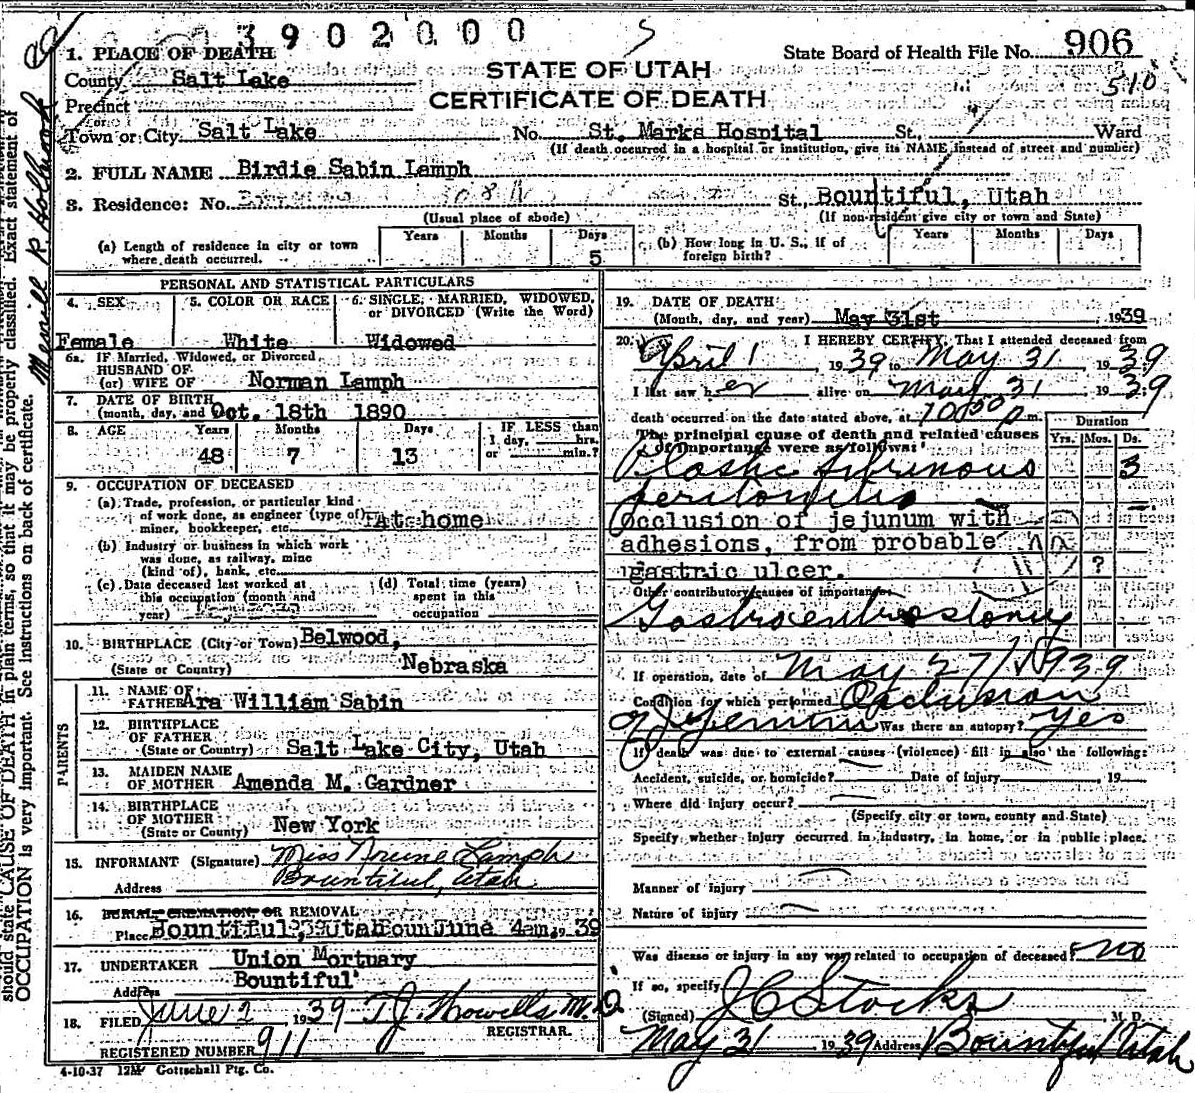 3902000
1. PLACE OF DEATH
State Board of Health File No. 906
County Salt Lake
STATE OF UTAH
510
Precinct
CERTIFICATE OF DEATH
or
Town or City Salt Lake No. St. Marks Hospital St., Ward
(If death occurred in a hospital or institution, give its NAME instead of street and number)
2. FULL NAME Birdie Sabin Lamph
3. Residence: No. St., Bountiful, Utah
(Usual place of abode) (If non-resident give city or town and State)
(a) Length of residence in city or town where death occurred. Years Months Days 5
(b) How long in U. S., if of foreign birth? Years Months Days
PERSONAL AND STATISTICAL PARTICULARS
4. SEX 5. COLOR OR RACE 6. SINGLE, MARRIED, WIDOWED, or DIVORCED (Write the Word)
Female White Widowed
6a. IF Married, Widowed, or Divorced
HUSBAND OF
(or) WIFE OF Norman Lamph
7. DATE OF BIRTH
(month, day, and Oct. 18th 1890
8. AGE Years Months Days IF LESS than
1 day, hrs.
48 7 13 or min.?
9. OCCUPATION OF DECEASED
(a) Trade, profession, or particular kind
of work done, as engineer (type of) At home
miner, bookkeeper, etc.
(b) Industry or business in which work
was done, as railway, mine
(kind of), bank, etc.
(c) Date deceased last worked at
this occupation (month and
year)
(d) Total time (years)
spent in this
occupation
10. BIRTHPLACE (City or Town) Belwood,
(State or Country) Nebraska
PARENTS
11. NAME OF
FATHER Ara William Sabin
12. BIRTHPLACE
OF FATHER
(State or Country) Salt Lake City, Utah
13. MAIDEN NAME
OF MOTHER Amenda M. Gardner
14. BIRTHPLACE
OF MOTHER
(State or County) New York
15. INFORMANT (Signature) Miss Lamph
Address Bountiful, Utah
16. BURIAL, CREMATION, OR REMOVAL
Place Bountiful, Utah June 4 39
17. UNDERTAKER Union Mortuary
Address Bountiful
18. FILED June 2 1939 T. J. Howells M.D.
REGISTRAR.
REGISTERED NUMBER 911
4-10-37 12M Gottschall Ptg. Co.
19. DATE OF DEATH
(Month, day, and year) May 31st 1939
20. I HEREBY CERTIFY, That I attended deceased from
April 1, 1939 to May 31, 1939
I last saw her alive on May 31 1939
death occurred on the date stated above, at 10:50 p m.
The principal cause of death and related causes
of importance were as follows:
Duration
Yrs. Mos. Ds.
Plastic fibrinous 3
peritonitis
Occlusion of jejunum with
adhesions, from probable
gastric ulcer. ?
Other contributory causes of importance:
Gastroenterostomy
If operation, date of May 27/1939
Condition for which performed Occlusion
of Jejunum Was there an autopsy? Yes
If death was due to external causes (violence) fill in also the following:
Accident, suicide, or homicide? Date of injury 19
Where did injury occur?
(Specify city or town, county and State)
Specify whether injury occurred in industry, in home, or in public place.
Manner of injury
Nature of injury
Was disease or injury in any way related to occupation of deceased? no
If so, specify
(Signed) J C Stocks M. D.
May 31 1939 Address Bountiful Utah
should state CAUSE OF DEATH in plain terms, so that it may be properly classified. Exact statement of
OCCUPATION is very important. See instructions on back of certificate.